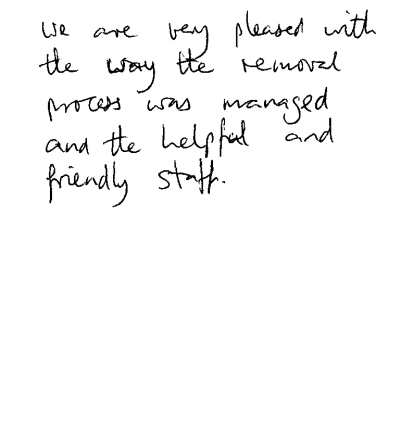 We are very pleased with
the way the removal
process was managed
and the helpful and
friendly staff.